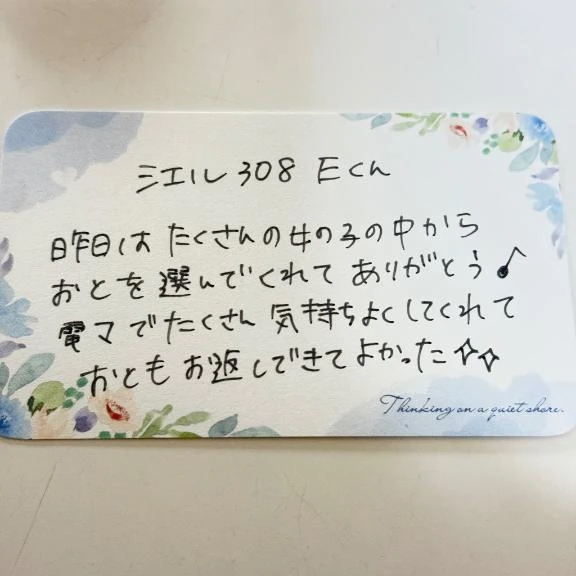 シエル 308 Eくん
昨日は たくさんの女の子の中から
おとを選んでくれて ありがとう♪
電マでたくさん 気持ちよくしてくれて
おともお返しできてよかった☆☆
Thinking on a quiet shore.